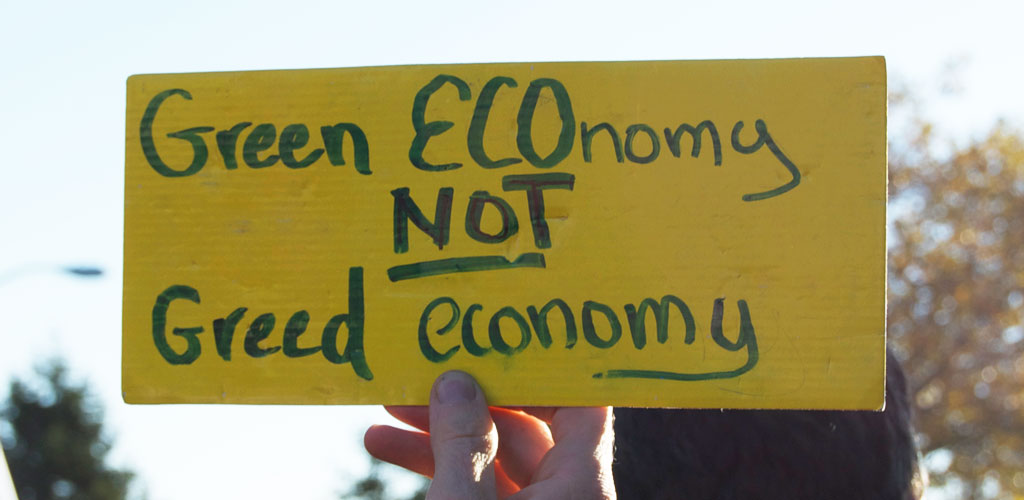 Green ECOnomy
NOT
Greed economy